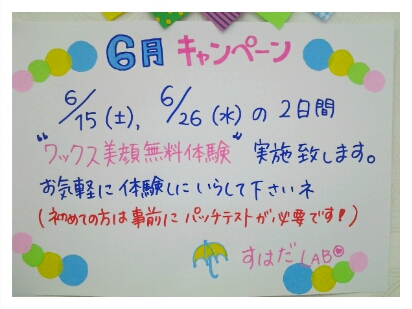 6月 キャンペーン
6/15(土)、6/26(水)の2日間
"ワックス美顔無料体験" 実施致します。
お気軽に体験しにいらして下さいネ
(初めての方は事前にパッチテストが必要です!)
すはだLAB